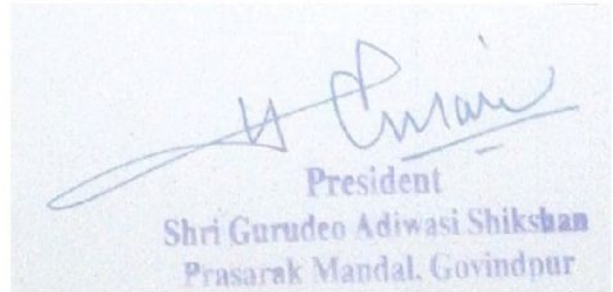 President
Shri Gurudeo Adiwasi Shikshan
Prasarak Mandal, Govindpur